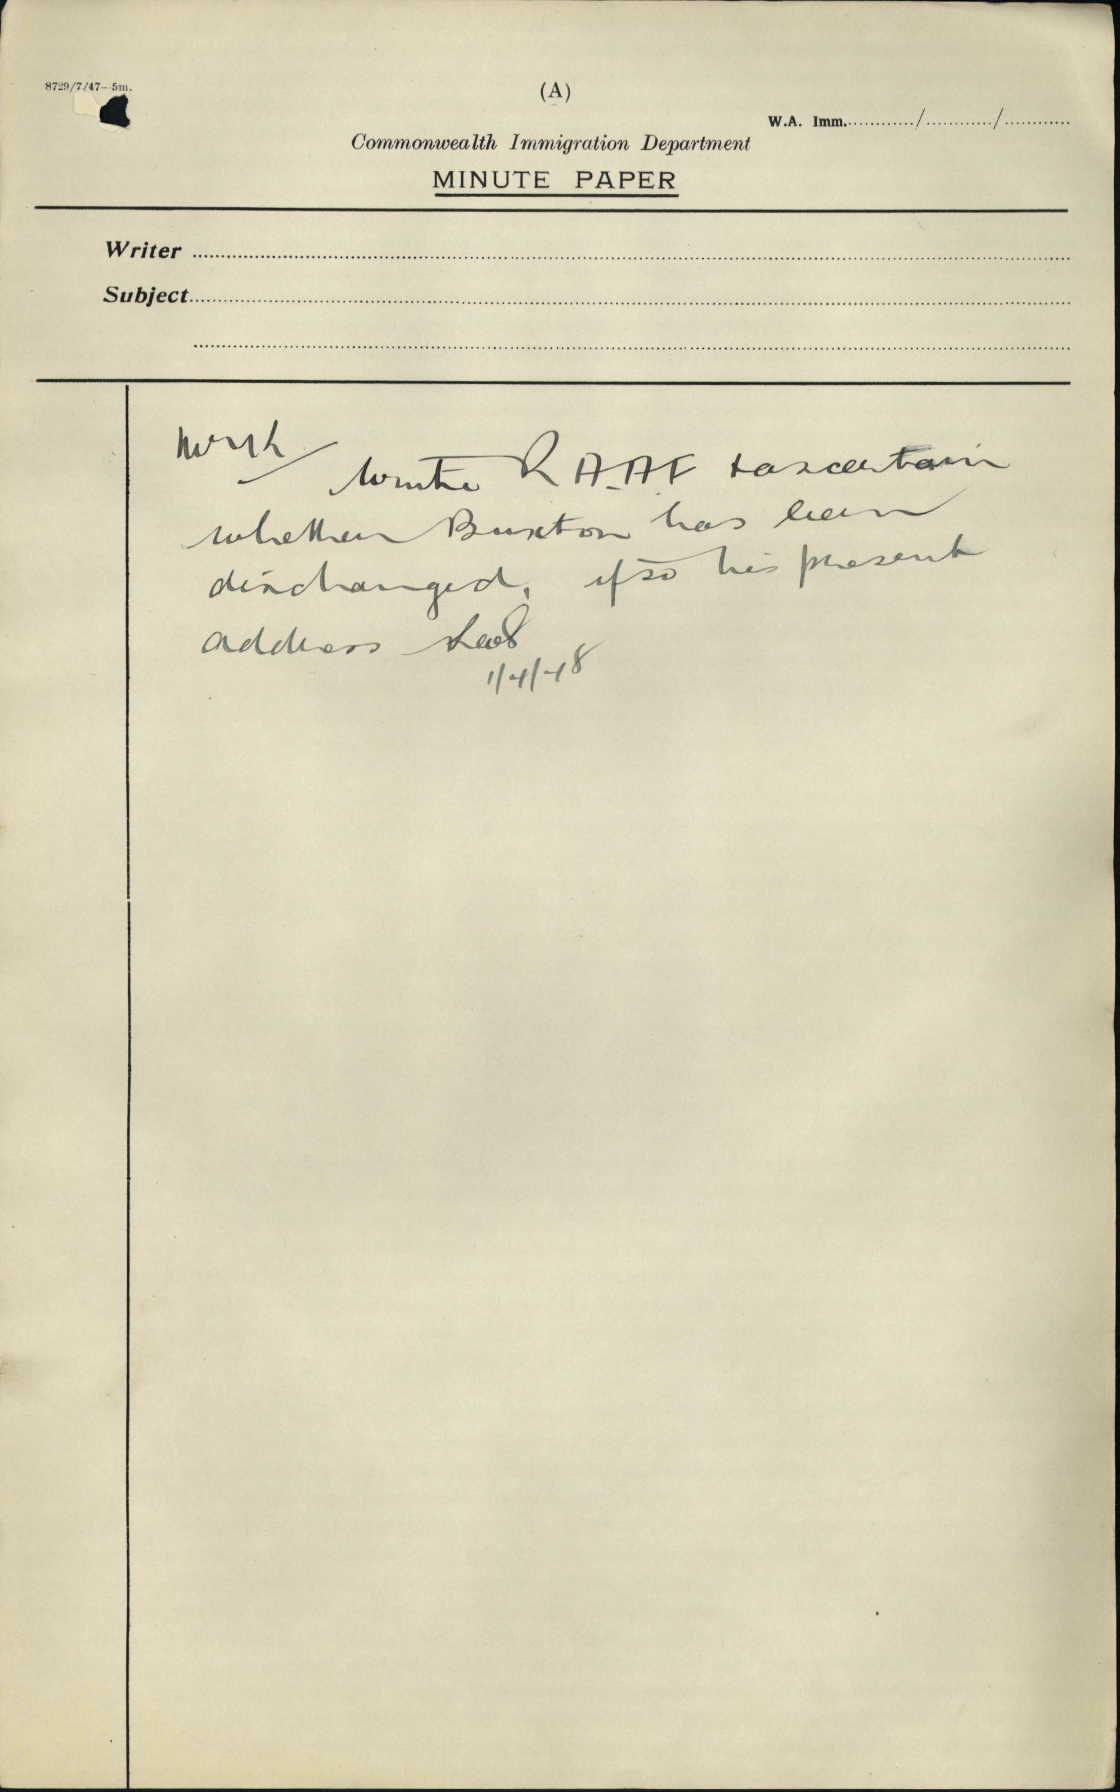 8729/7/47—5m.
(A)
W.A. Imm.............../............../..............
Commonwealth Immigration Department
MINUTE PAPER
Writer
Subject
Write RAAF to ascertain
whether Buxton has been
discharged, if so his present
address
1/4/48